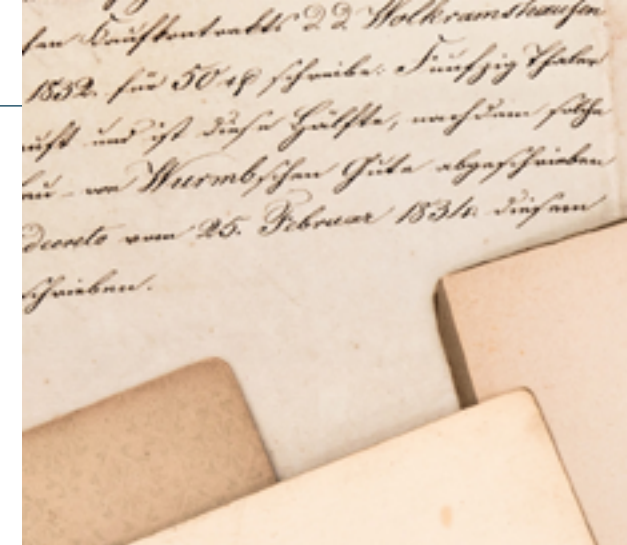 Kaufkontrakts D D Wolkramshausen
1832. für 50 rℓ schreibe: Fünfzig Thaler
und ist diese Hälfte, nachdem solche
von Wurmbschen Gute abgeschrieben
decreto vom 25. Februar 1834. diesem
schrieben.